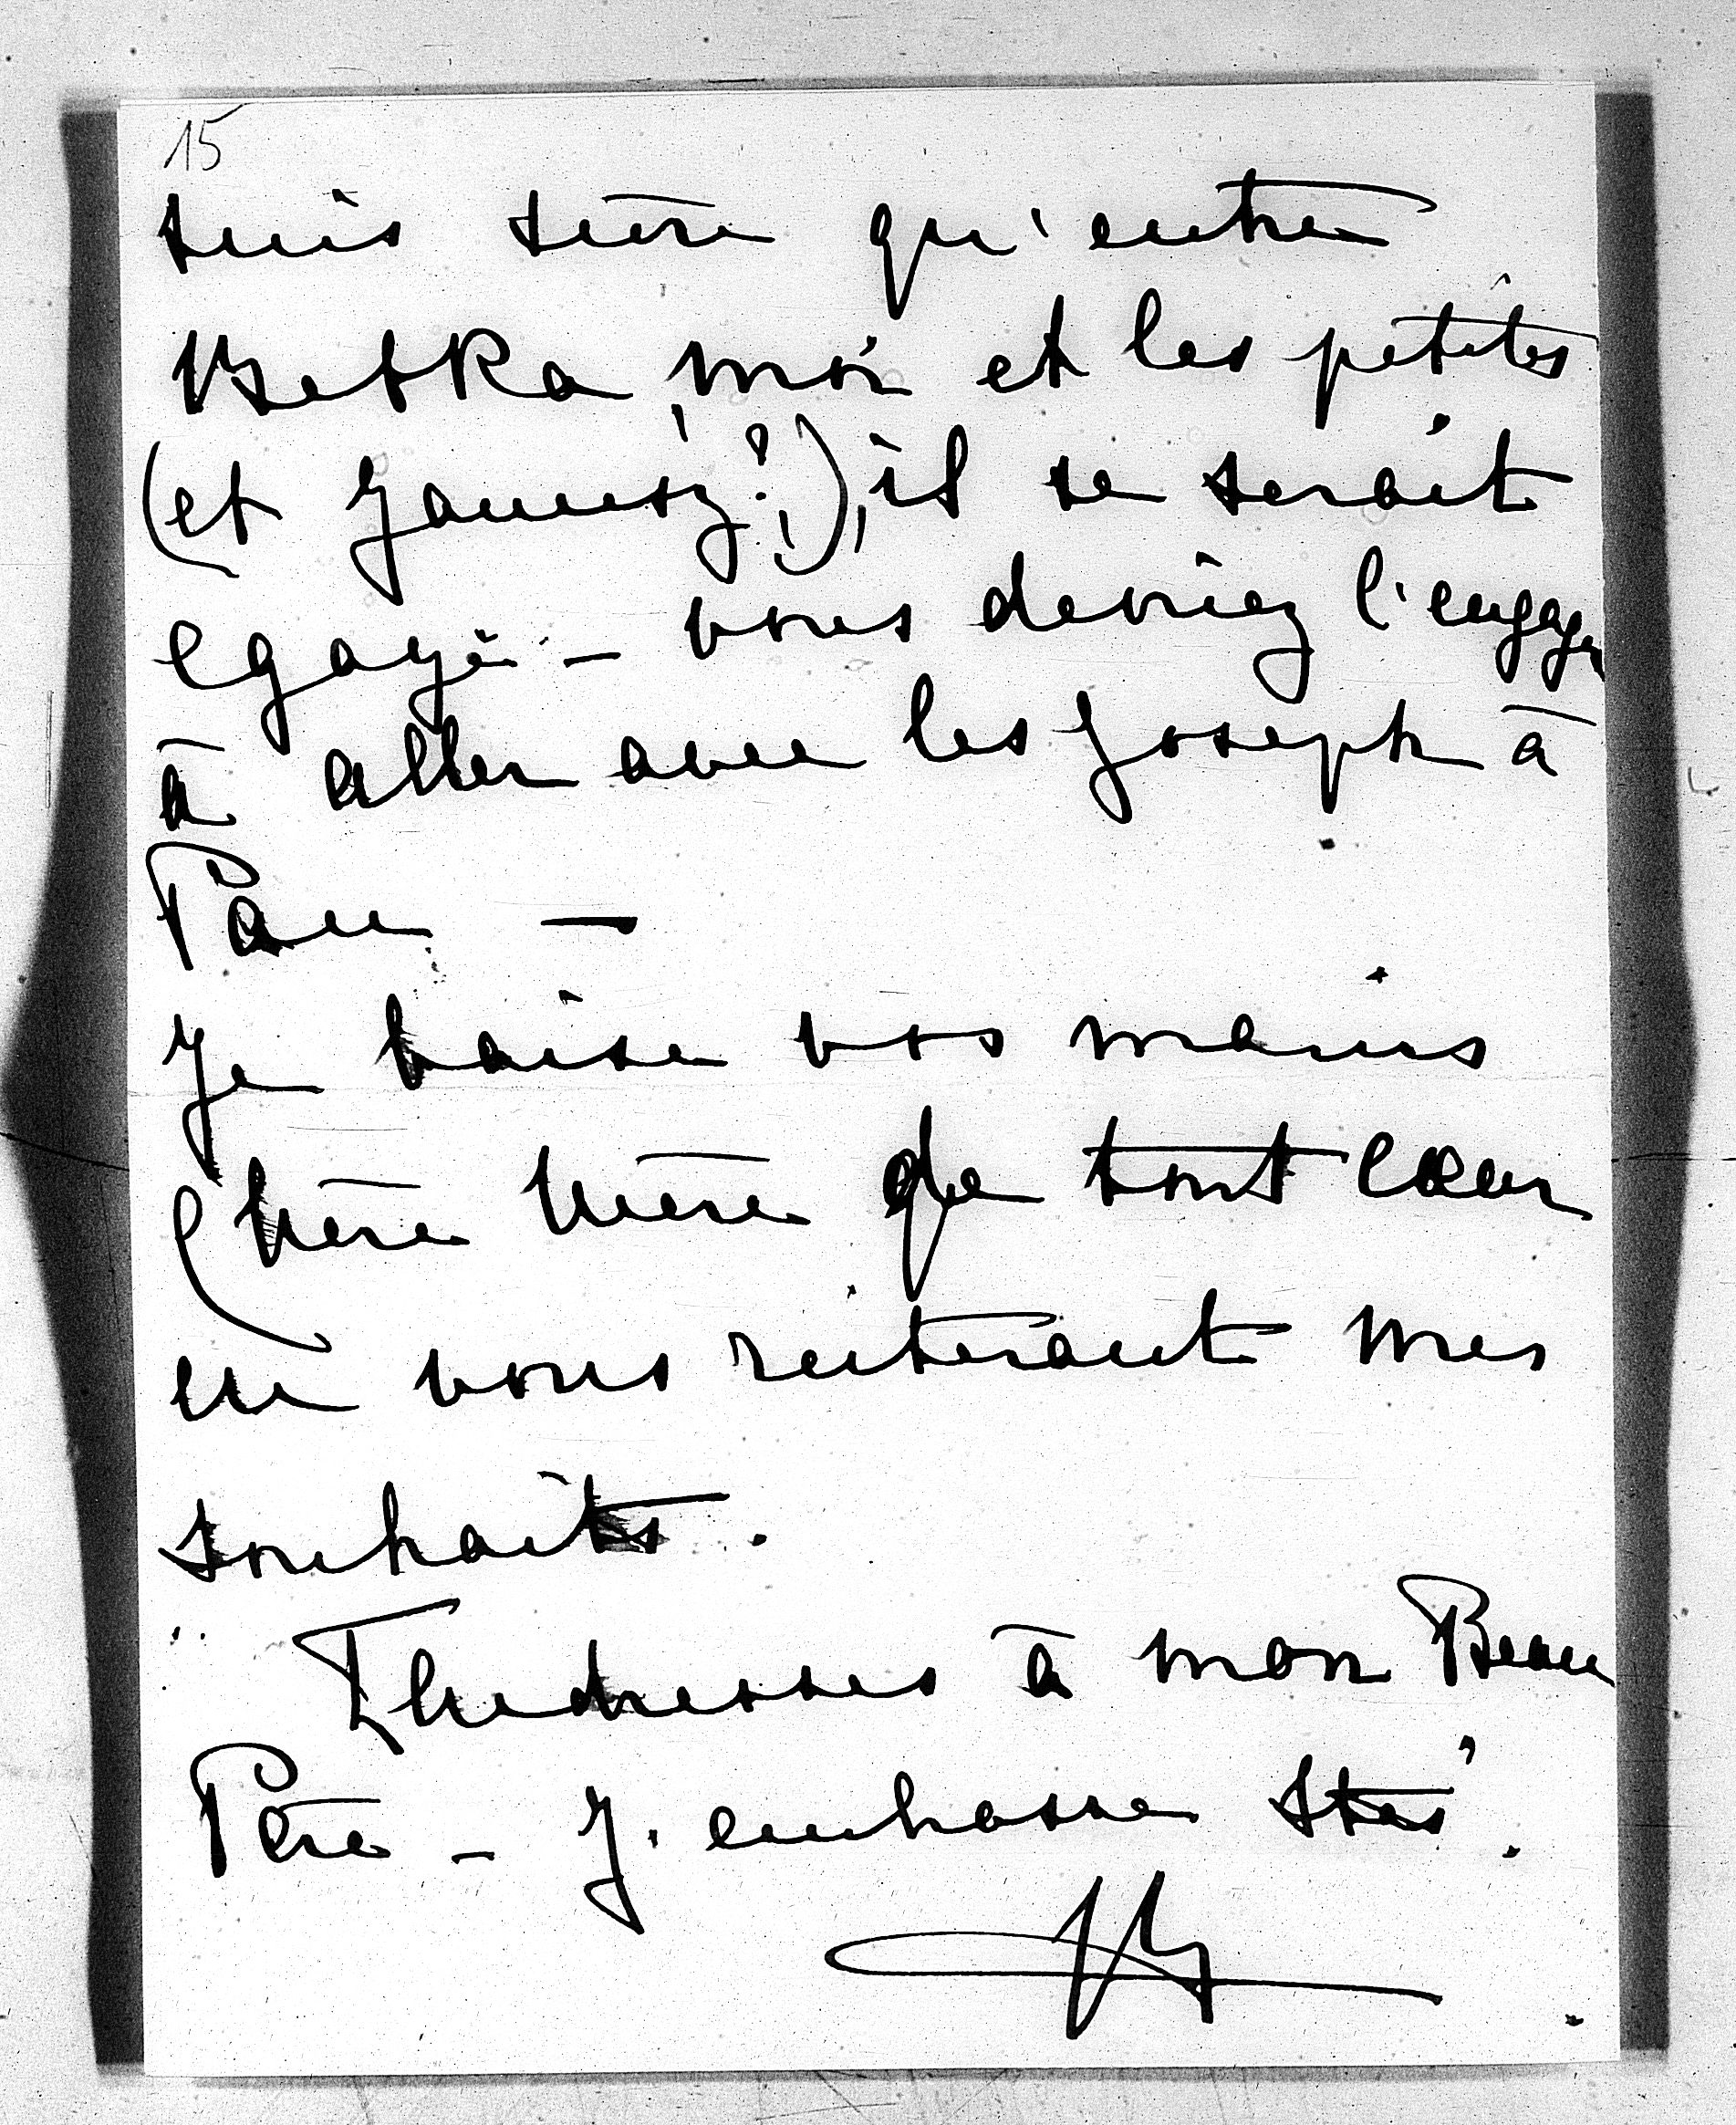 15
suis sûre qu'entre
Betka, moi et les petites
(et Janusz?!), il se serait
egayé - vous devriez l'engager
à aller avec les Joseph à
Pau —
Je baise vos mains
Chère Mère de tout cœur
en vous reiterant mes
souhaits.
Thedresses à mon Beau
Père - J'embrasse Staś.